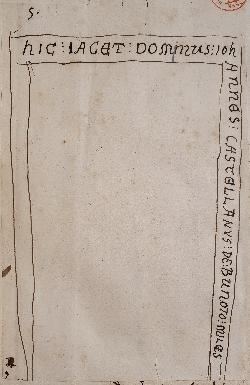 5.
hIC : IACET : DOMINUS : IOh
ANNES : CASTELLANVS : DE : BUNOTO : MILES